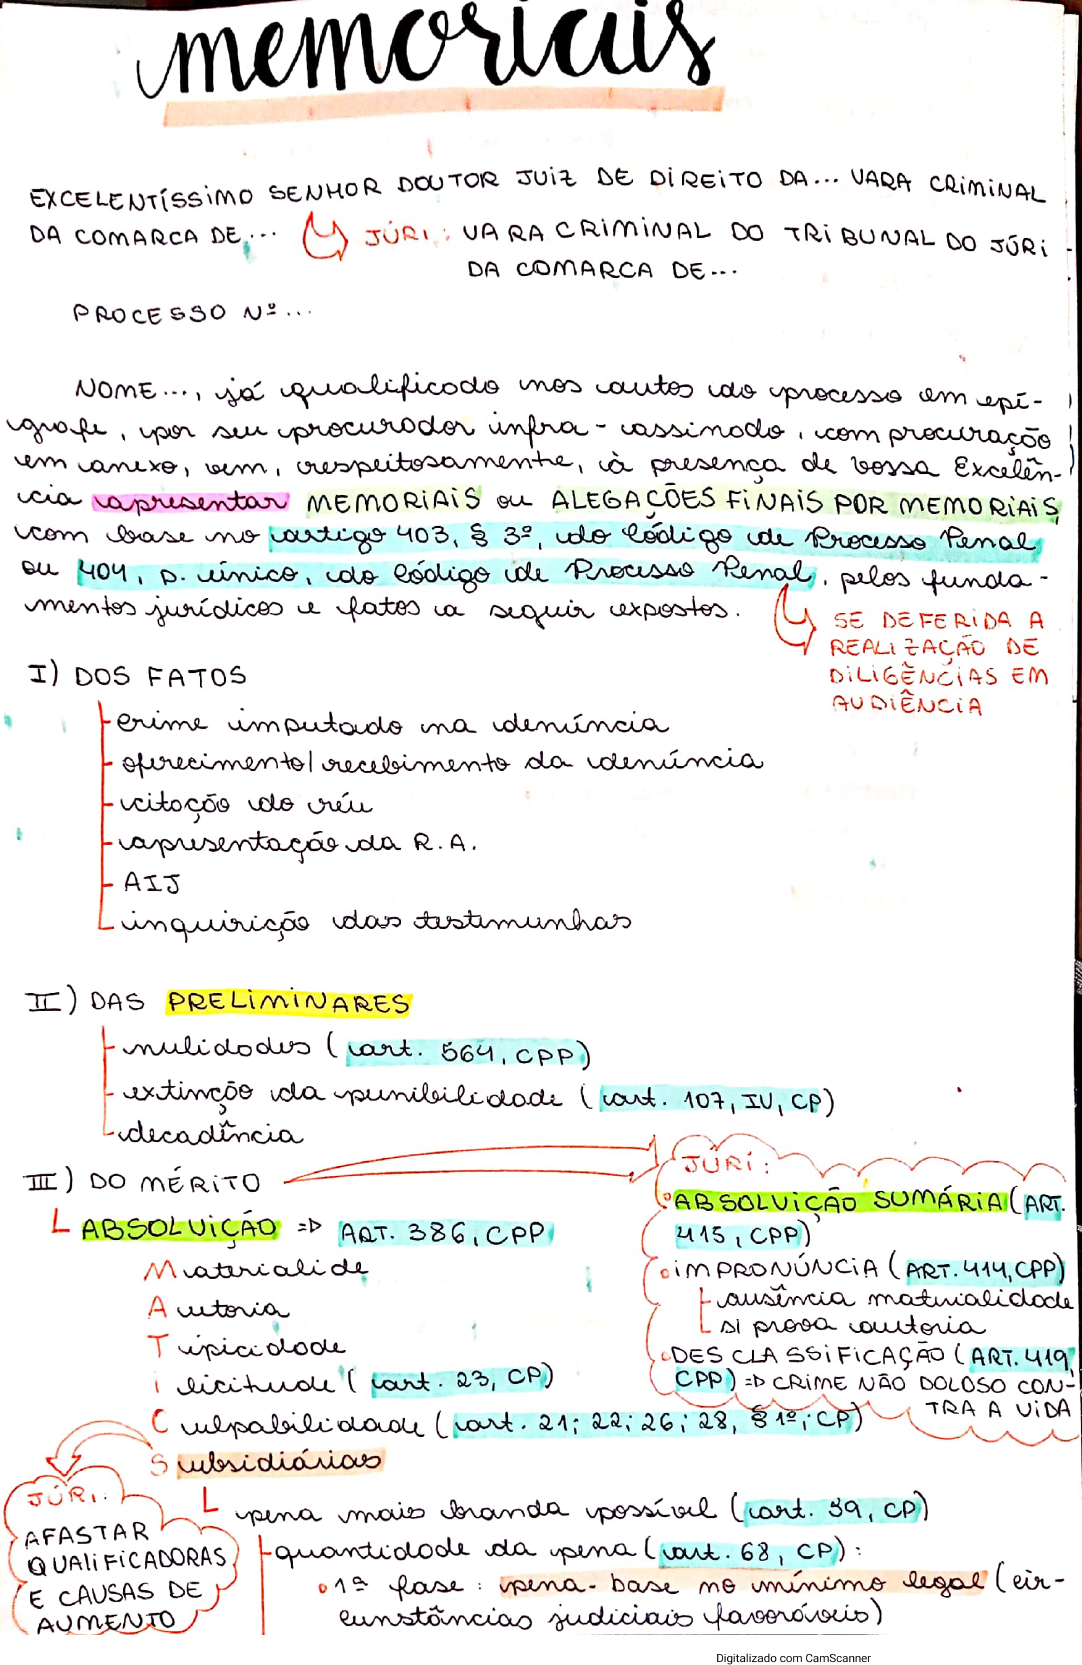 memoriais
EXCELENTÍSSIMO SENHOR DOUTOR JUIZ DE DIREITO DA... VARA CRIMINAL
DA COMARCA DE... JÚRI: VARA CRIMINAL DO TRIBUNAL DO JÚRI
DA COMARCA DE...
PROCESSO Nº...
NOME..., já qualificado nos autos do processo em epí-
grafe, por seu procurador infra-assinado, com procuração
em anexo, vem, respeitosamente, à presença de vossa Excelên-
cia apresentar MEMORIAIS ou ALEGAÇÕES FINAIS POR MEMORIAIS,
com base no artigo 403, § 3º, do Código de Processo Penal
ou 404, p. único, do Código de Processo Penal, pelos funda-
mentos jurídicos e fatos a seguir expostos.
SE DEFERIDA A
REALIZAÇÃO DE
DILIGÊNCIAS EM
AUDIÊNCIA
I) DOS FATOS
crime imputado na denúncia
oferecimento/recebimento da denúncia
citação do réu
apresentação da R.A.
AIJ
inquirição das testemunhas
II) DAS PRELIMINARES
nulidades (art. 564, CPP)
extinção da punibilidade (art. 107, IV, CP)
decadência
III) DO MÉRITO
ABSOLVIÇÃO => ART. 386, CPP
Materialide
Autoria
Tipicidade
ilicitude (art. 23, CP)
Culpabilidade (art. 21; 22; 26; 28, § 1º; CP)
Subsidiárias
JÚRI:
ABSOLVIÇÃO SUMÁRIA (ART.
415, CPP)
IMPRONÚNCIA (ART. 414, CPP)
ausência materialidade
s/ prova autoria
DESCLASSIFICAÇÃO (ART. 419,
CPP) => CRIME NÃO DOLOSO CON-
TRA A VIDA
JÚRI:
AFASTAR
QUALIFICADORAS
E CAUSAS DE
AUMENTO
pena mais branda possível (art. 59, CP)
quantidade da pena (art. 68, CP):
1ª fase: pena-base no mínimo legal (cir-
cunstâncias judiciais favoráveis)
Digitalizado com CamScanner